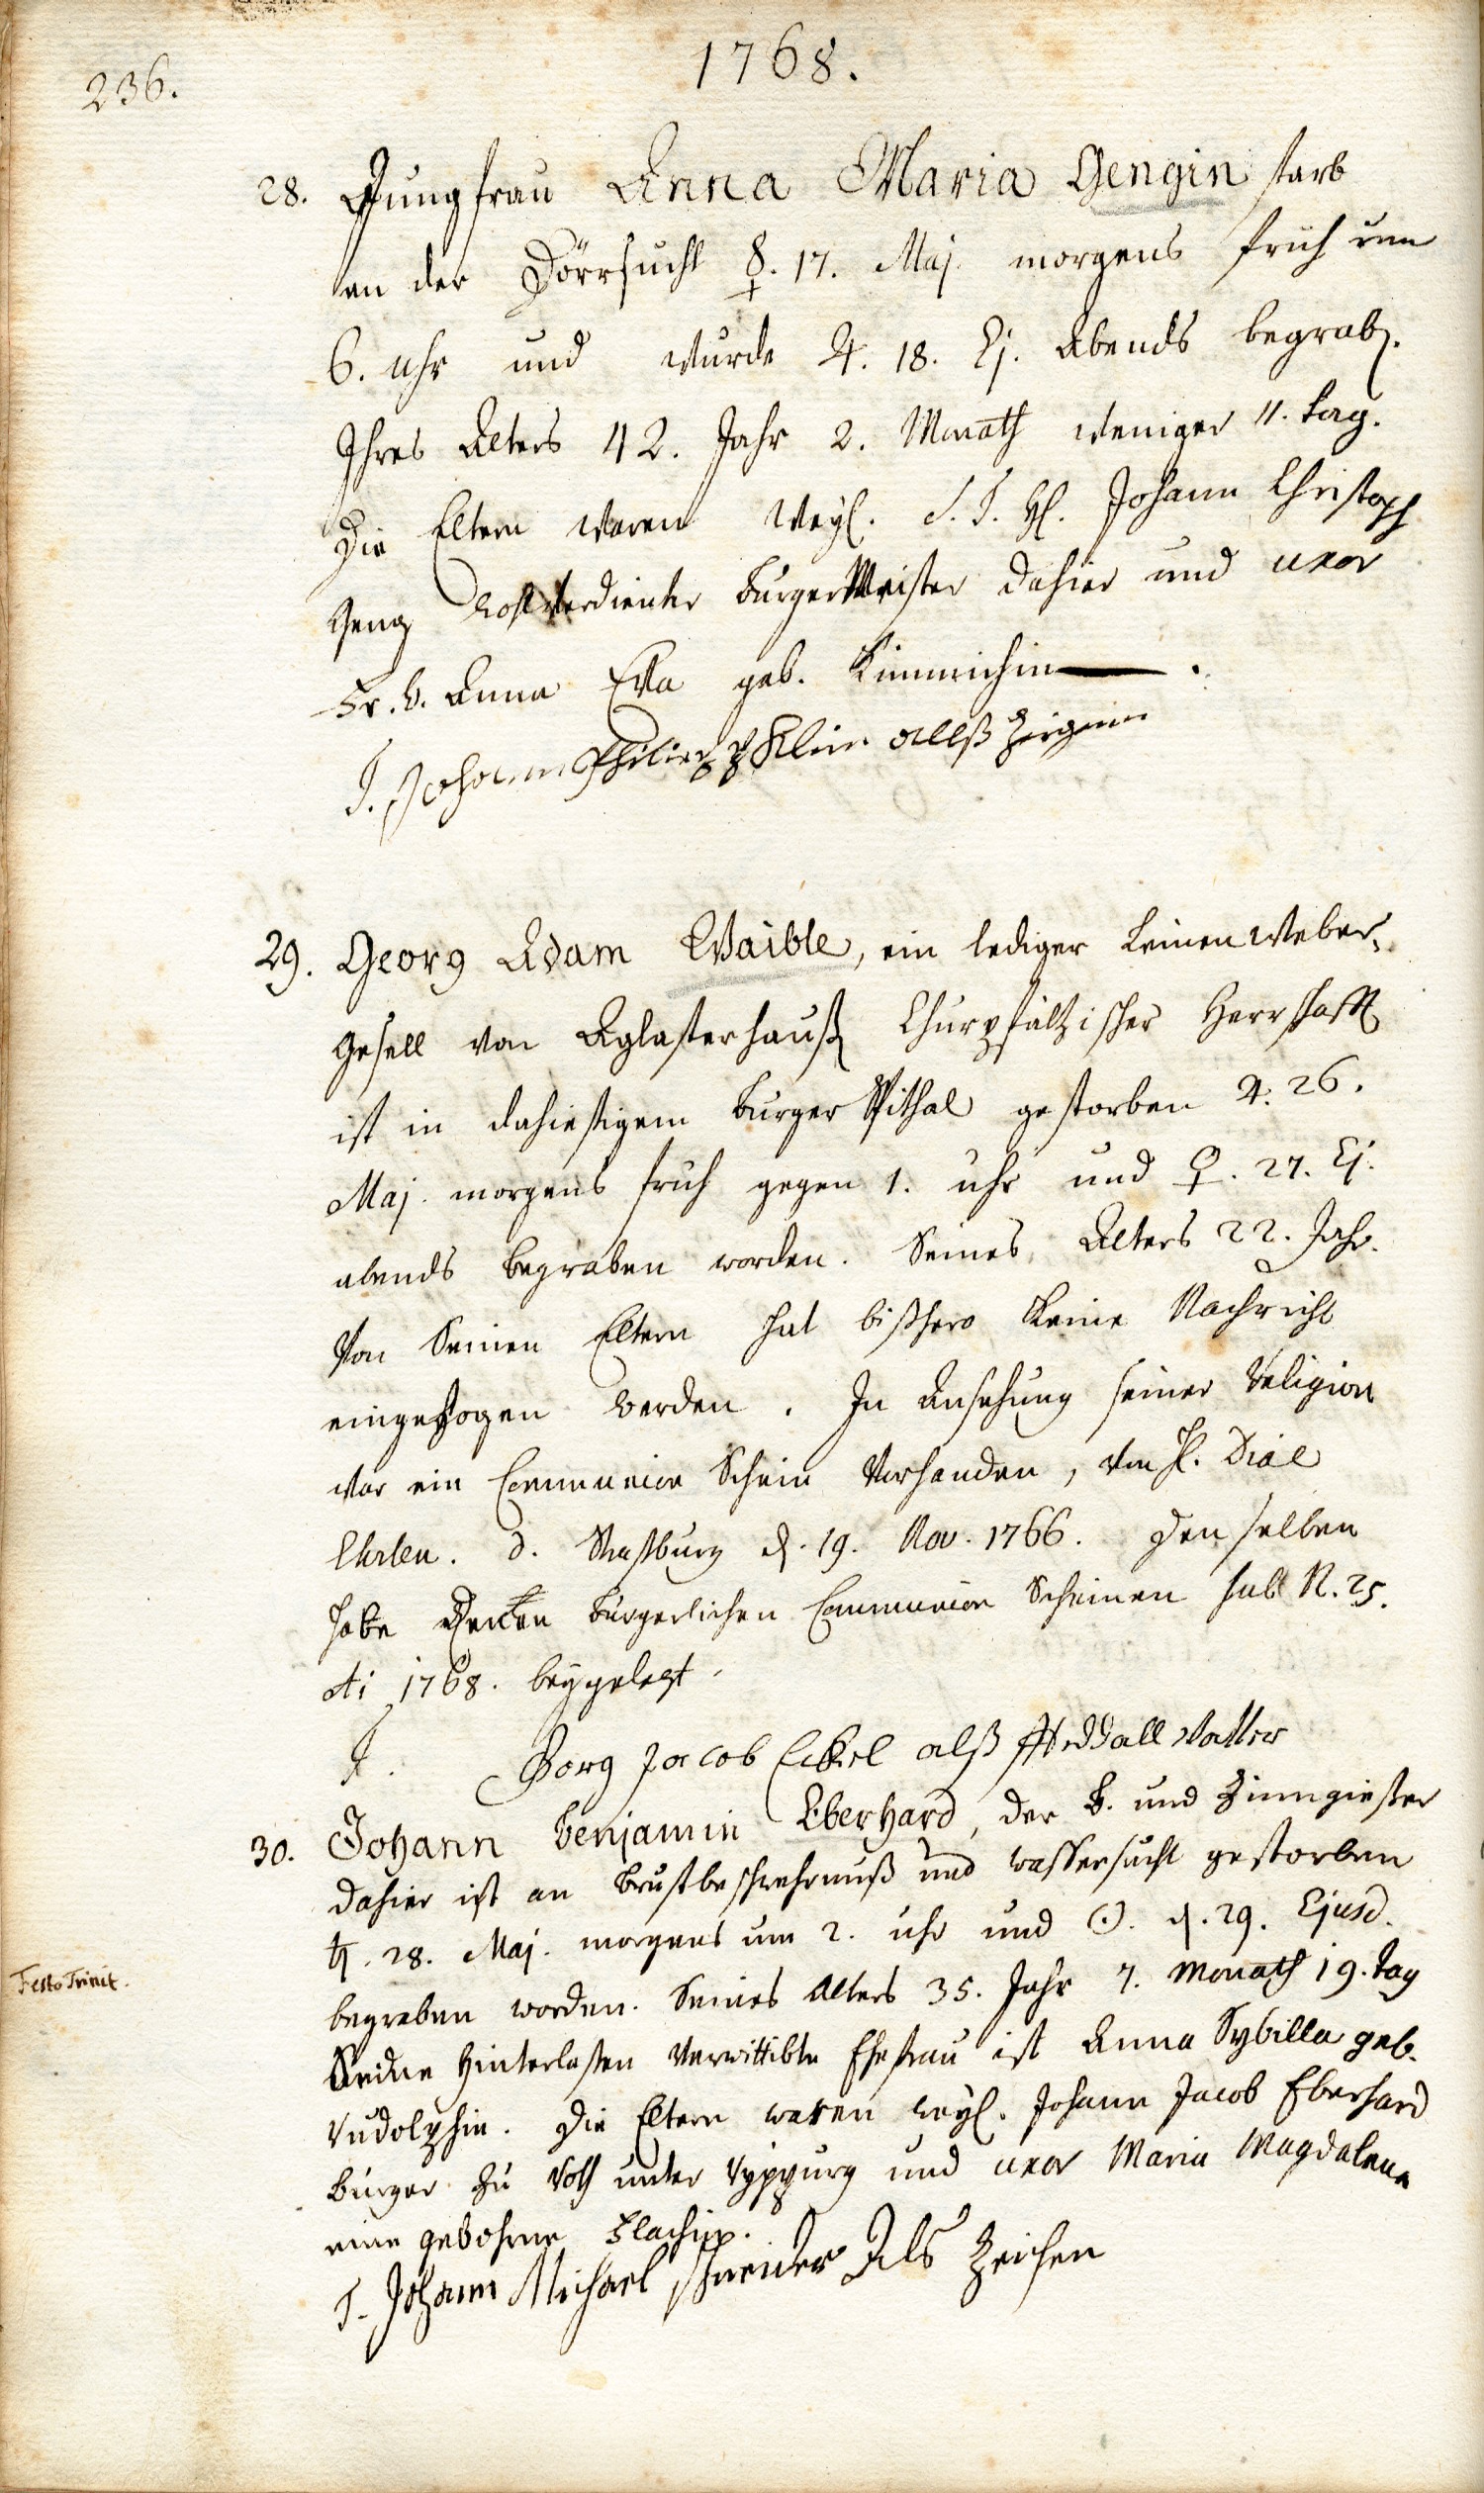 236.
1768.
28. Jungfrau Anna Maria Gengin starb
an der Dörrsucht ☿. 17. Maj. morgens früh um
6. Uhr und wurde ♃. 18. Ej. Abends begrab.
Ihres Alters 42. Jahr 2. Monath weniger 11. Tag.
Die Eltern waren Weyl. S. T. H. Johann Christoph
Geng wohlverdienter BurgerMeister dahier und uxor
Fr. Anna Eva geb. Kimmichin.
T. Johann Philipp Klein allß Zeigen
29. Georg Adam Waible, ein lediger LeinenWeber
gesell von Aglasterhauß Churpfältzischer Herrschafft
ist in dahiesigem Burger Spithal gestorben ♃. 26.
Maj. morgens fruh gegen 1. uhr und ♀. 27. Ej.
abends begraben worden. Seines Alters 22. Jahr.
Von Seinen Eltern hat bißhero keine Nachricht
eingezogen werden. In Ansehung seiner Religion
war ein Communion Schein Vorhanden, von H. Dial
Ehrlen. d. Straßburg d. 19. Nov. 1766. Den selben
habe Denen Burgerlichen Communion Scheinen sub N. 25.
Ai 1768. beygelegt.
T. Gorg Jacob Eckel alß Vatter
30. Johann Benjamin Eberhard, der B. und Zinngießer
dahier ist an Brustbeschwehrnuß und wassersucht gestorben
♄. 28. Maj. morgens um 2. uhr und ☉. d. 29. Ejusd.
Festo Trinit.
begraben worden. Seines Alters 35. Jahr 7. Monath 19. Tag
Seine Hinterlassen Verwittibte Ehefrau ist Anna Sybilla geb.
Rudolphin. Die Eltern waren weyl. Johann Jacob Eberhard
Burger zu Roth unter Rippurg und uxor Maria Magdalena
eine gebohrne
T. Johann Michael Schneider Als Zeichen